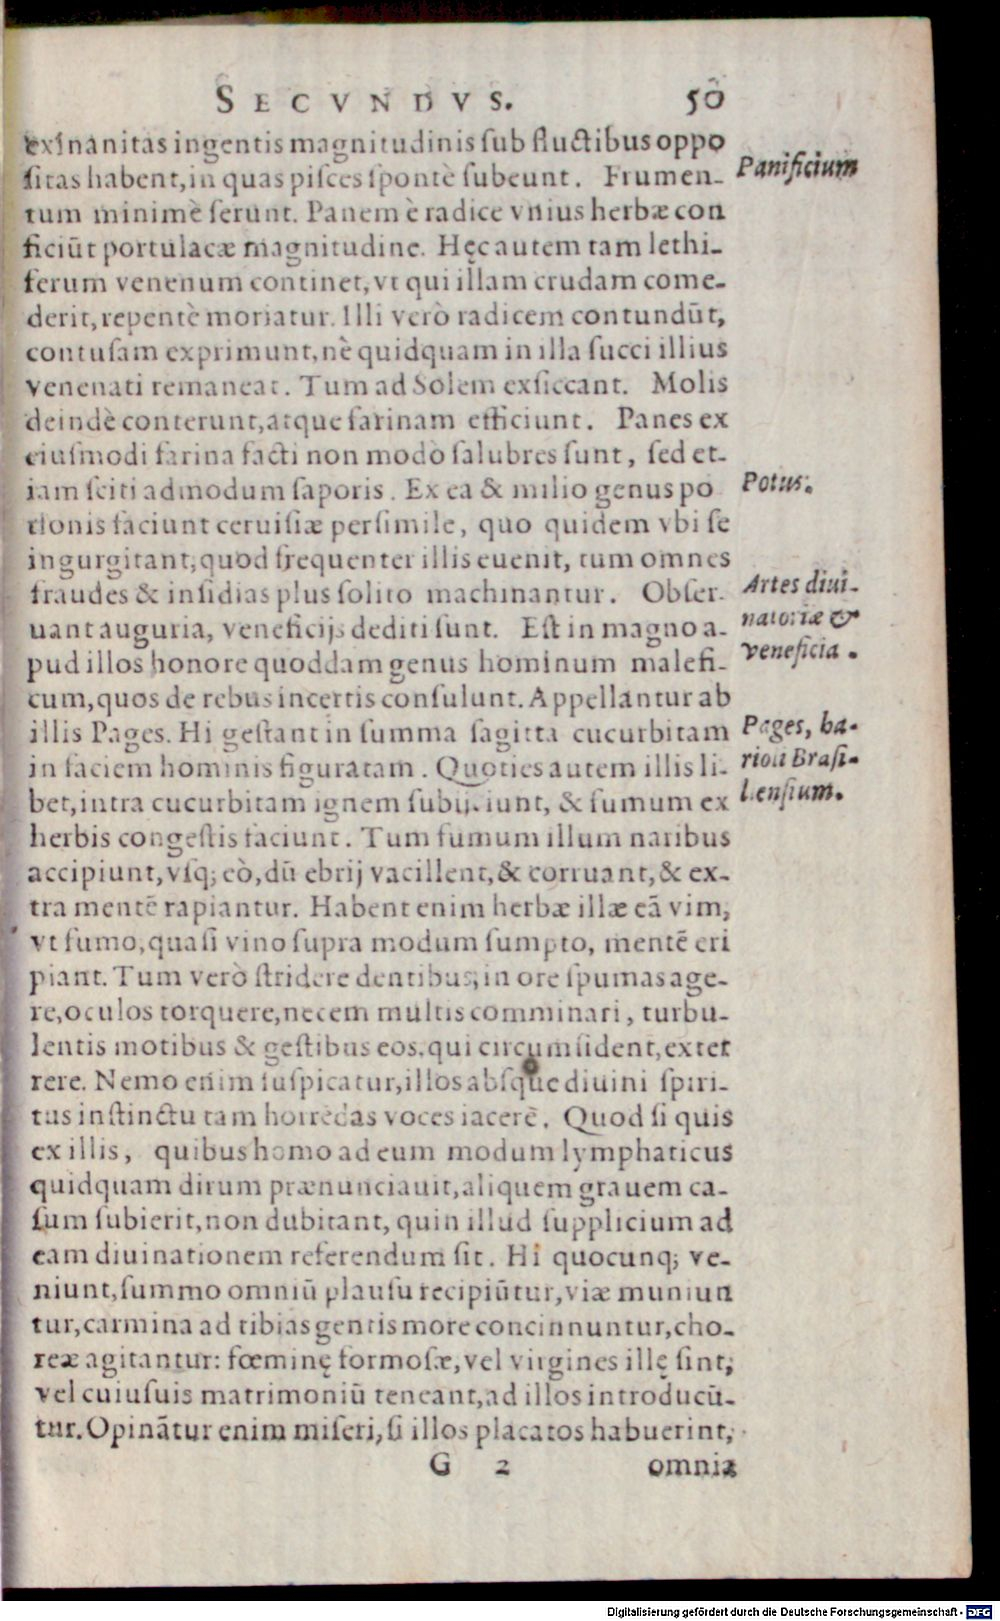 SECVNDVS. 50
exinanitas ingentis magnitudinis sub fluctibus oppo
sitas habent, in quas pisces spontè subeunt. Frumen-
tum minimè serunt. Panem è radice vnius herbæ con
ficiūt portulacæ magnitudine. Hęc autem tam lethi-
ferum venenum continet, vt qui illam crudam come-
derit, repentè moriatur. Illi verò radicem contundūt,
contusam exprimunt, nè quidquam in illa succi illius
venenati remaneat. Tum ad Solem exsiccant. Molis
deindè conterunt, atque farinam efficiunt. Panes ex
eiusmodi farina facti non modò salubres sunt, sed et-
iam sciti admodum saporis. Ex ea & milio genus po
tionis faciunt ceruisiæ persimile, quo quidem vbi se
ingurgitant; quod frequenter illis euenit, tum omnes
fraudes & insidias plus solito machinantur. Obser-
uant auguria, veneficijs dediti sunt. Est in magno a-
pud illos honore quoddam genus hominum malefi-
cum, quos de rebus incertis consulunt. Appellantur ab
illis Pages. Hi gestant in summa sagitta cucurbitam
in faciem hominis figuratam. Quoties autem illis li-
bet, intra cucurbitam ignem subijciunt, & fumum ex
herbis congestis faciunt. Tum fumum illum naribus
accipiunt, vsq; eò, dū ebrij vacillent, & corruant, & ex-
tra mentē rapiantur. Habent enim herbæ illæ eā vim,
vt fumo, quasi vino supra modum sumpto, mentē eri
piant. Tum verò stridere dentibus, in ore spumas age-
re, oculos torquere, necem multis comminari, turbu-
lentis motibus & gestibus eos, qui circumsident, exter
rere. Nemo enim suspicatur, illos absque diuini spiri-
tus instinctu tam horrēdas voces iacerē. Quod si quis
ex illis, quibus homo ad eum modum lymphaticus
quidquam dirum prænunciauit, aliquem grauem ca-
sum subierit, non dubitant, quin illud supplicium ad
eam diuinationem referendum sit. Hi quocunq; ve-
niunt, summo omniū plausu recipiūtur, viæ muniun
tur, carmina ad tibias gentis more concinnuntur, cho-
reæ agitantur: fœminę formosæ, vel virgines illę sint,
vel cuiusuis matrimoniū teneant, ad illos introducū-
tur. Opinātur enim miseri, si illos placatos habuerint,
G 2 omnia
Panificium
Potus.
Artes diui-
natoriæ &
veneficia.
Pages, ha-
rioli Brasi-
liensium.
Digitalisierung gefördert durch die Deutsche Forschungsgemeinschaft - DFG